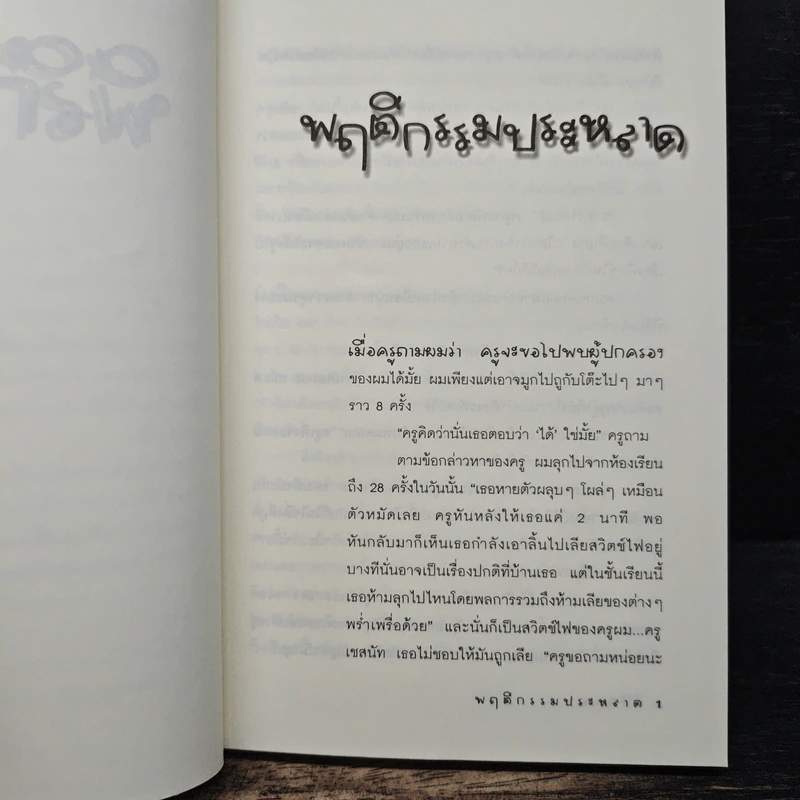 พฤติกรรมประหลาด
เมื่อครูถามผมว่า ครูจะขอไปพบผู้ปกครอง
ของผมได้มั้ย ผมเพียงแต่เอาจมูกไปถูกับโต๊ะไปๆ มาๆ
ราว 8 ครั้ง
“ครูคิดว่านั่นเธอตอบว่า ‘ได้’ ใช่มั้ย” ครูถาม
ตามข้อกล่าวหาของครู ผมลุกไปจากห้องเรียน
ถึง 28 ครั้งในวันนั้น “เธอหายตัวผลุบๆ โผล่ๆ เหมือน
ตัวหมัดเลย ครูหันหลังให้เธอแค่ 2 นาที พอ
หันกลับมาก็เห็นเธอกำลังเอาลิ้นไปเลียสวิตช์ไฟอยู่
บางทีนั่นอาจเป็นเรื่องปกติที่บ้านเธอ แต่ในชั้นเรียนนี้
เธอห้ามลุกไปไหนโดยพลการรวมถึงห้ามเลียของต่างๆ
พร่ำเพรื่อด้วย” และนั่นก็เป็นสวิตช์ไฟของครูผม...ครู
เชสนัท เธอไม่ชอบให้มันถูกเลีย “ครูขอถามหน่อยนะ
พฤติกรรมประหลาด 1